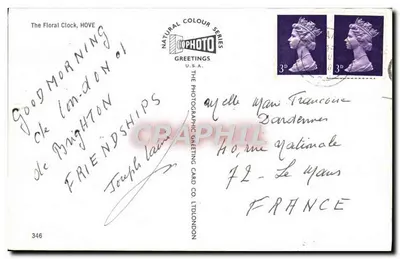 The Floral Clock, HOVE
GOOD MORNING
de London et
de BRIGHTON
FRIENDSHIPS
Joseph
346
NATURAL COLOUR SERIES
PHOTO
GREETINGS
U.S.A.
THE PHOTOGRAPHIC GREETING CARD CO. LTD. LONDON
3D
3D
Melle Marie Francoise
Dardennes
40, rue Nationale
72 - Le Mans
FRANCE
CPARAMA